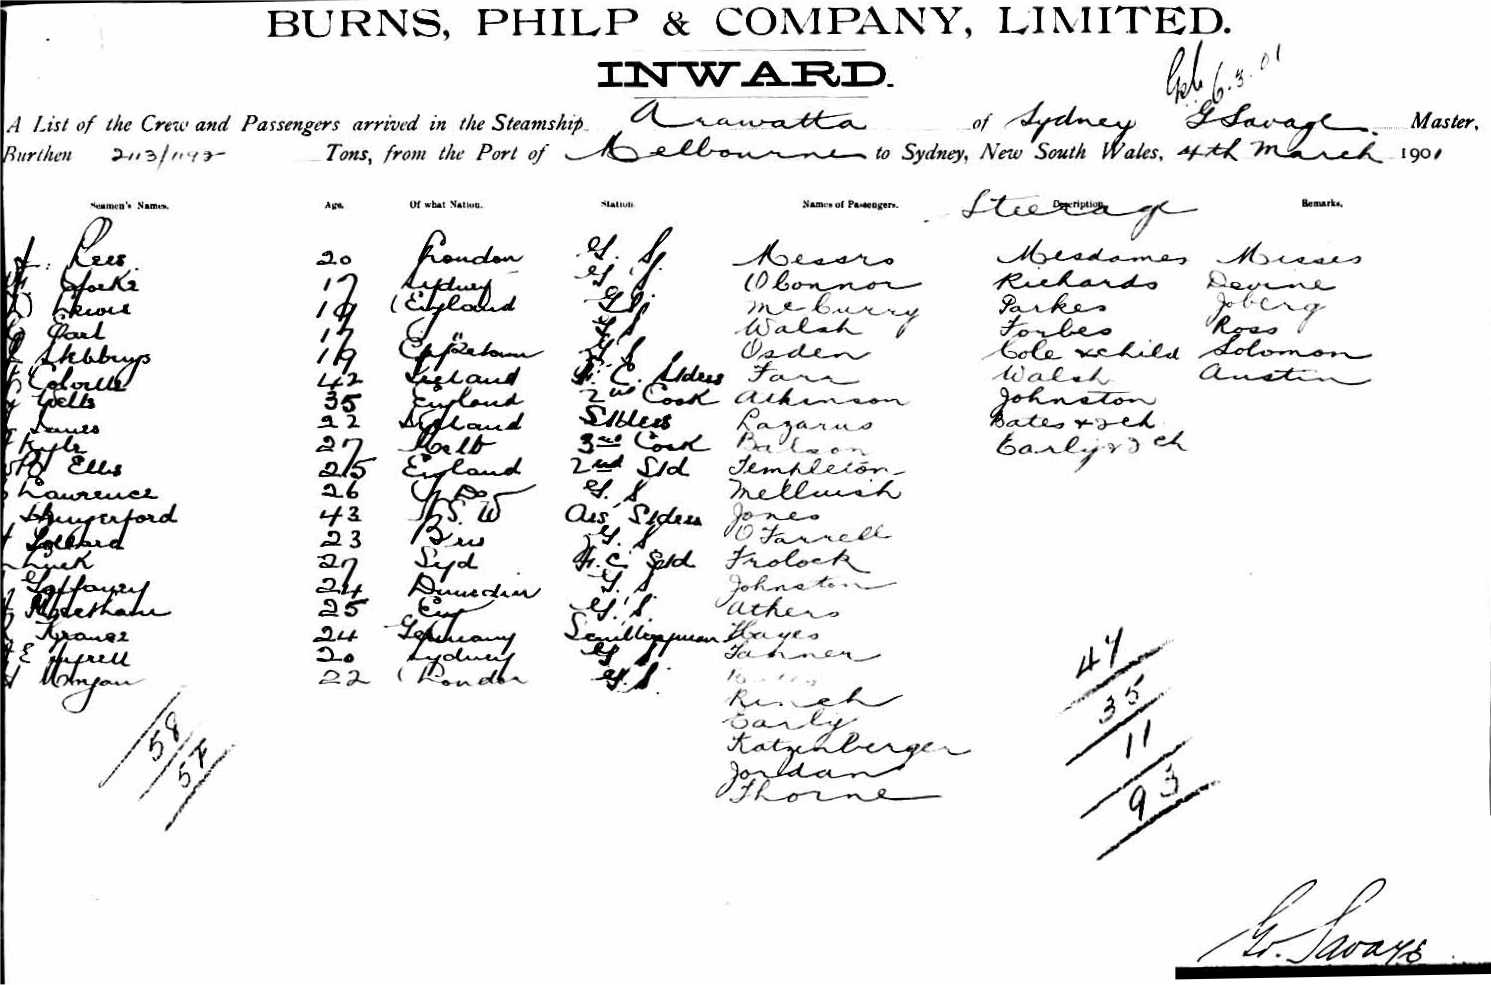 BURNS, PHILP & COMPANY, LIMITED.
INWARD.
6.3.01
A List of the Crew and Passengers arrived in the Steamship Arawatta of Sydney G Savage Master,
Burthen 2113/1192 Tons, from the Port of Melbourne to Sydney, New South Wales, 4th March 1901
Seamen's Names. Age. Of what Nation. Station. Names of Passengers. Description. Remarks.
Steerage
Rees 20 London G. S. Messrs Mesdames Misses
17 Sydney G S O'Connor Richards Devine
19 England G S McCurry Parkes Joberg
Carl 17 G S Walsh Forbes Ross
19 Capetown G S Osden Cole & child Solomon
Colville 42 Ireland F. C. Slders Farr Walsh Austin
Wells 35 England 2nd Cook Atkinson Johnston
James 22 England Slders Lazarus Bates & 2 ch
Kyle 27 Melb 3rd Cook Early & 2 ch
Ellis 25 England 2nd Sld Templeton
Lawrence 26 Do G. S Melluish
Hungerford 43 N. S. W Ars Sldeu Jones
23 Bris G. S O'Farrell
27 Syd F. C Sld Frolock
Gaffaney 24 Dunedin G. S Johnston
25 Eng G. S. Athers
Krause 24 Germany Scullyman Hayes
E Tyrell 20 Sydney G S Tanner
Morgan 22 London G. S.
Rinch
Early
Katzenberger
Jordan
Thorne
58
57
47
35
11
93
G. Savage